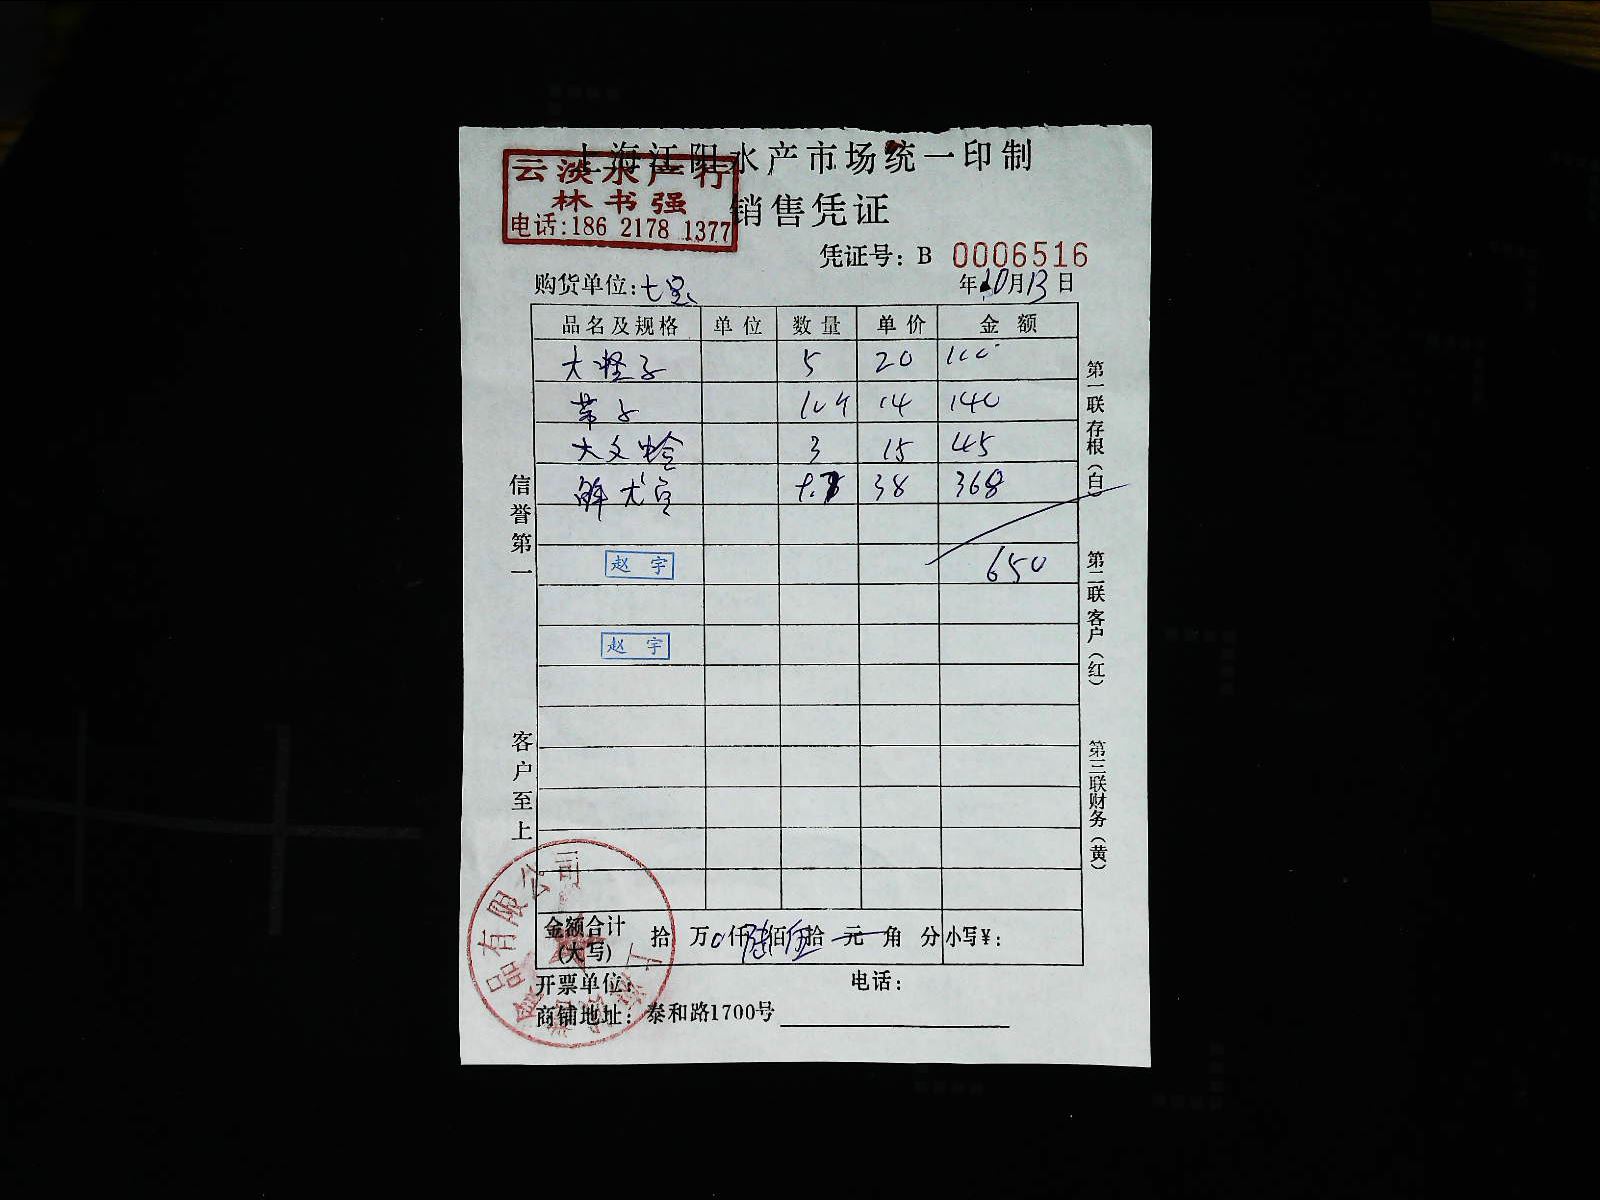 上海江阳水产市场统一印制
云淡水产行
林书强
电话:186 2178 1377
销售凭证
凭证号: B 0006516
购货单位:七宝
年10月13日
品名及规格 单位 数量 单价 金额
大蛏子 5 20 100
带子 10个 14 140
大文蛤 3 15 45
鲜 38 368
650
赵宇
赵宇
信誉第一
客户至上
第一联存根(白)
第二联客户(红)
第三联财务(黄)
金额合计(大写) 拾 万0仟陆佰伍拾 元 角 分 小写¥:
开票单位: 电话:
商铺地址: 泰和路1700号
品有限公司